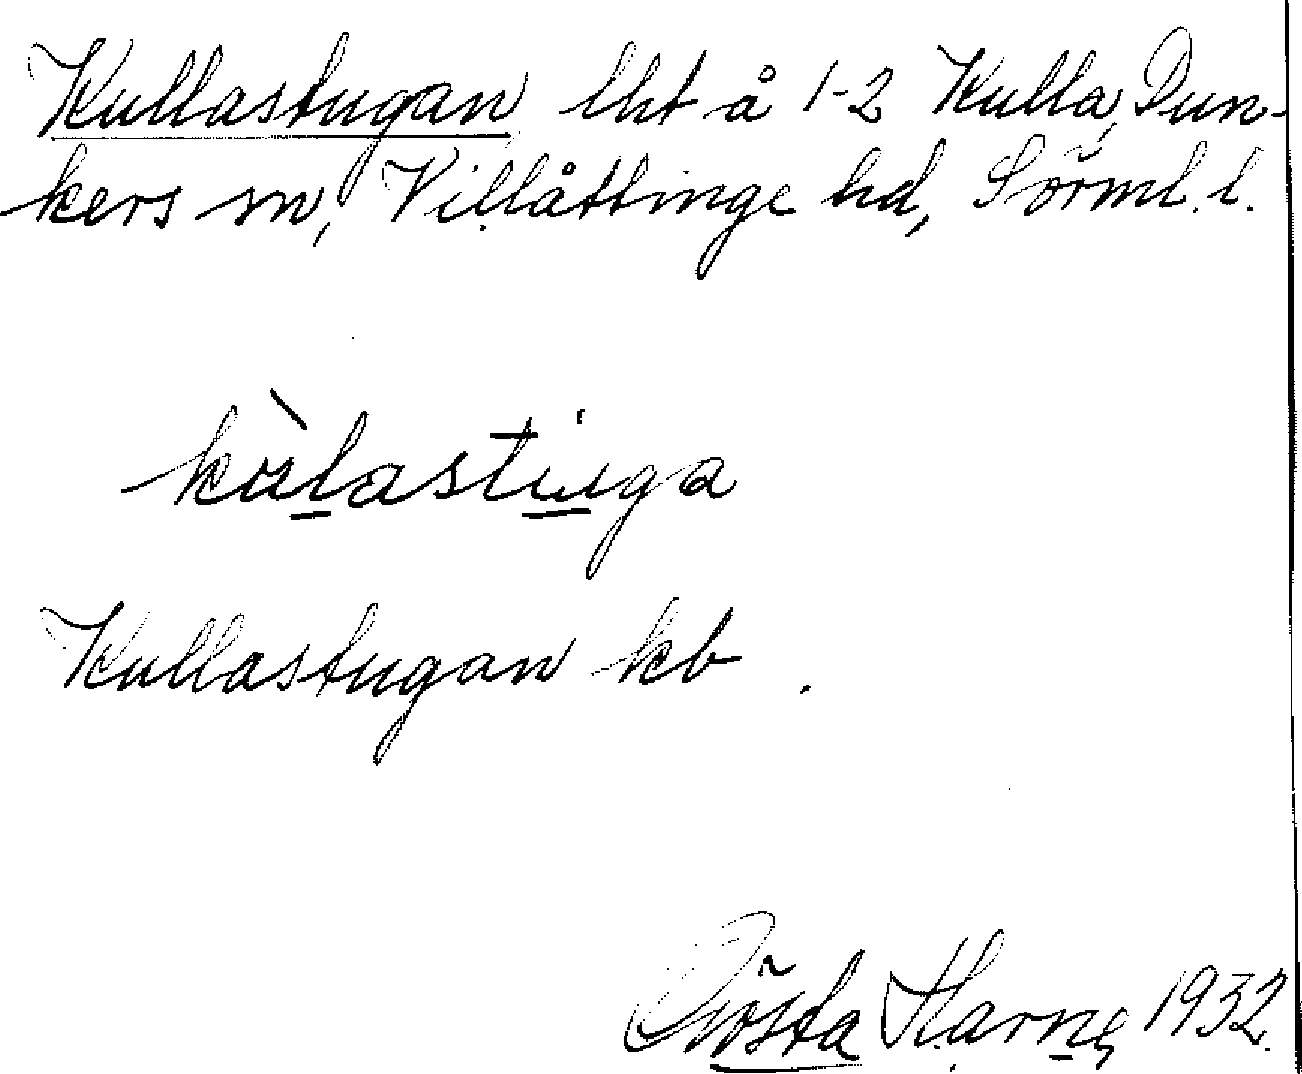 Kullastugan lht å 1-2 Kulla, Dun-
kers sn, Villåttinge hd, Sörml. l.
kùlastuga
Kullastugan kb.
Gösta Harne 1932.